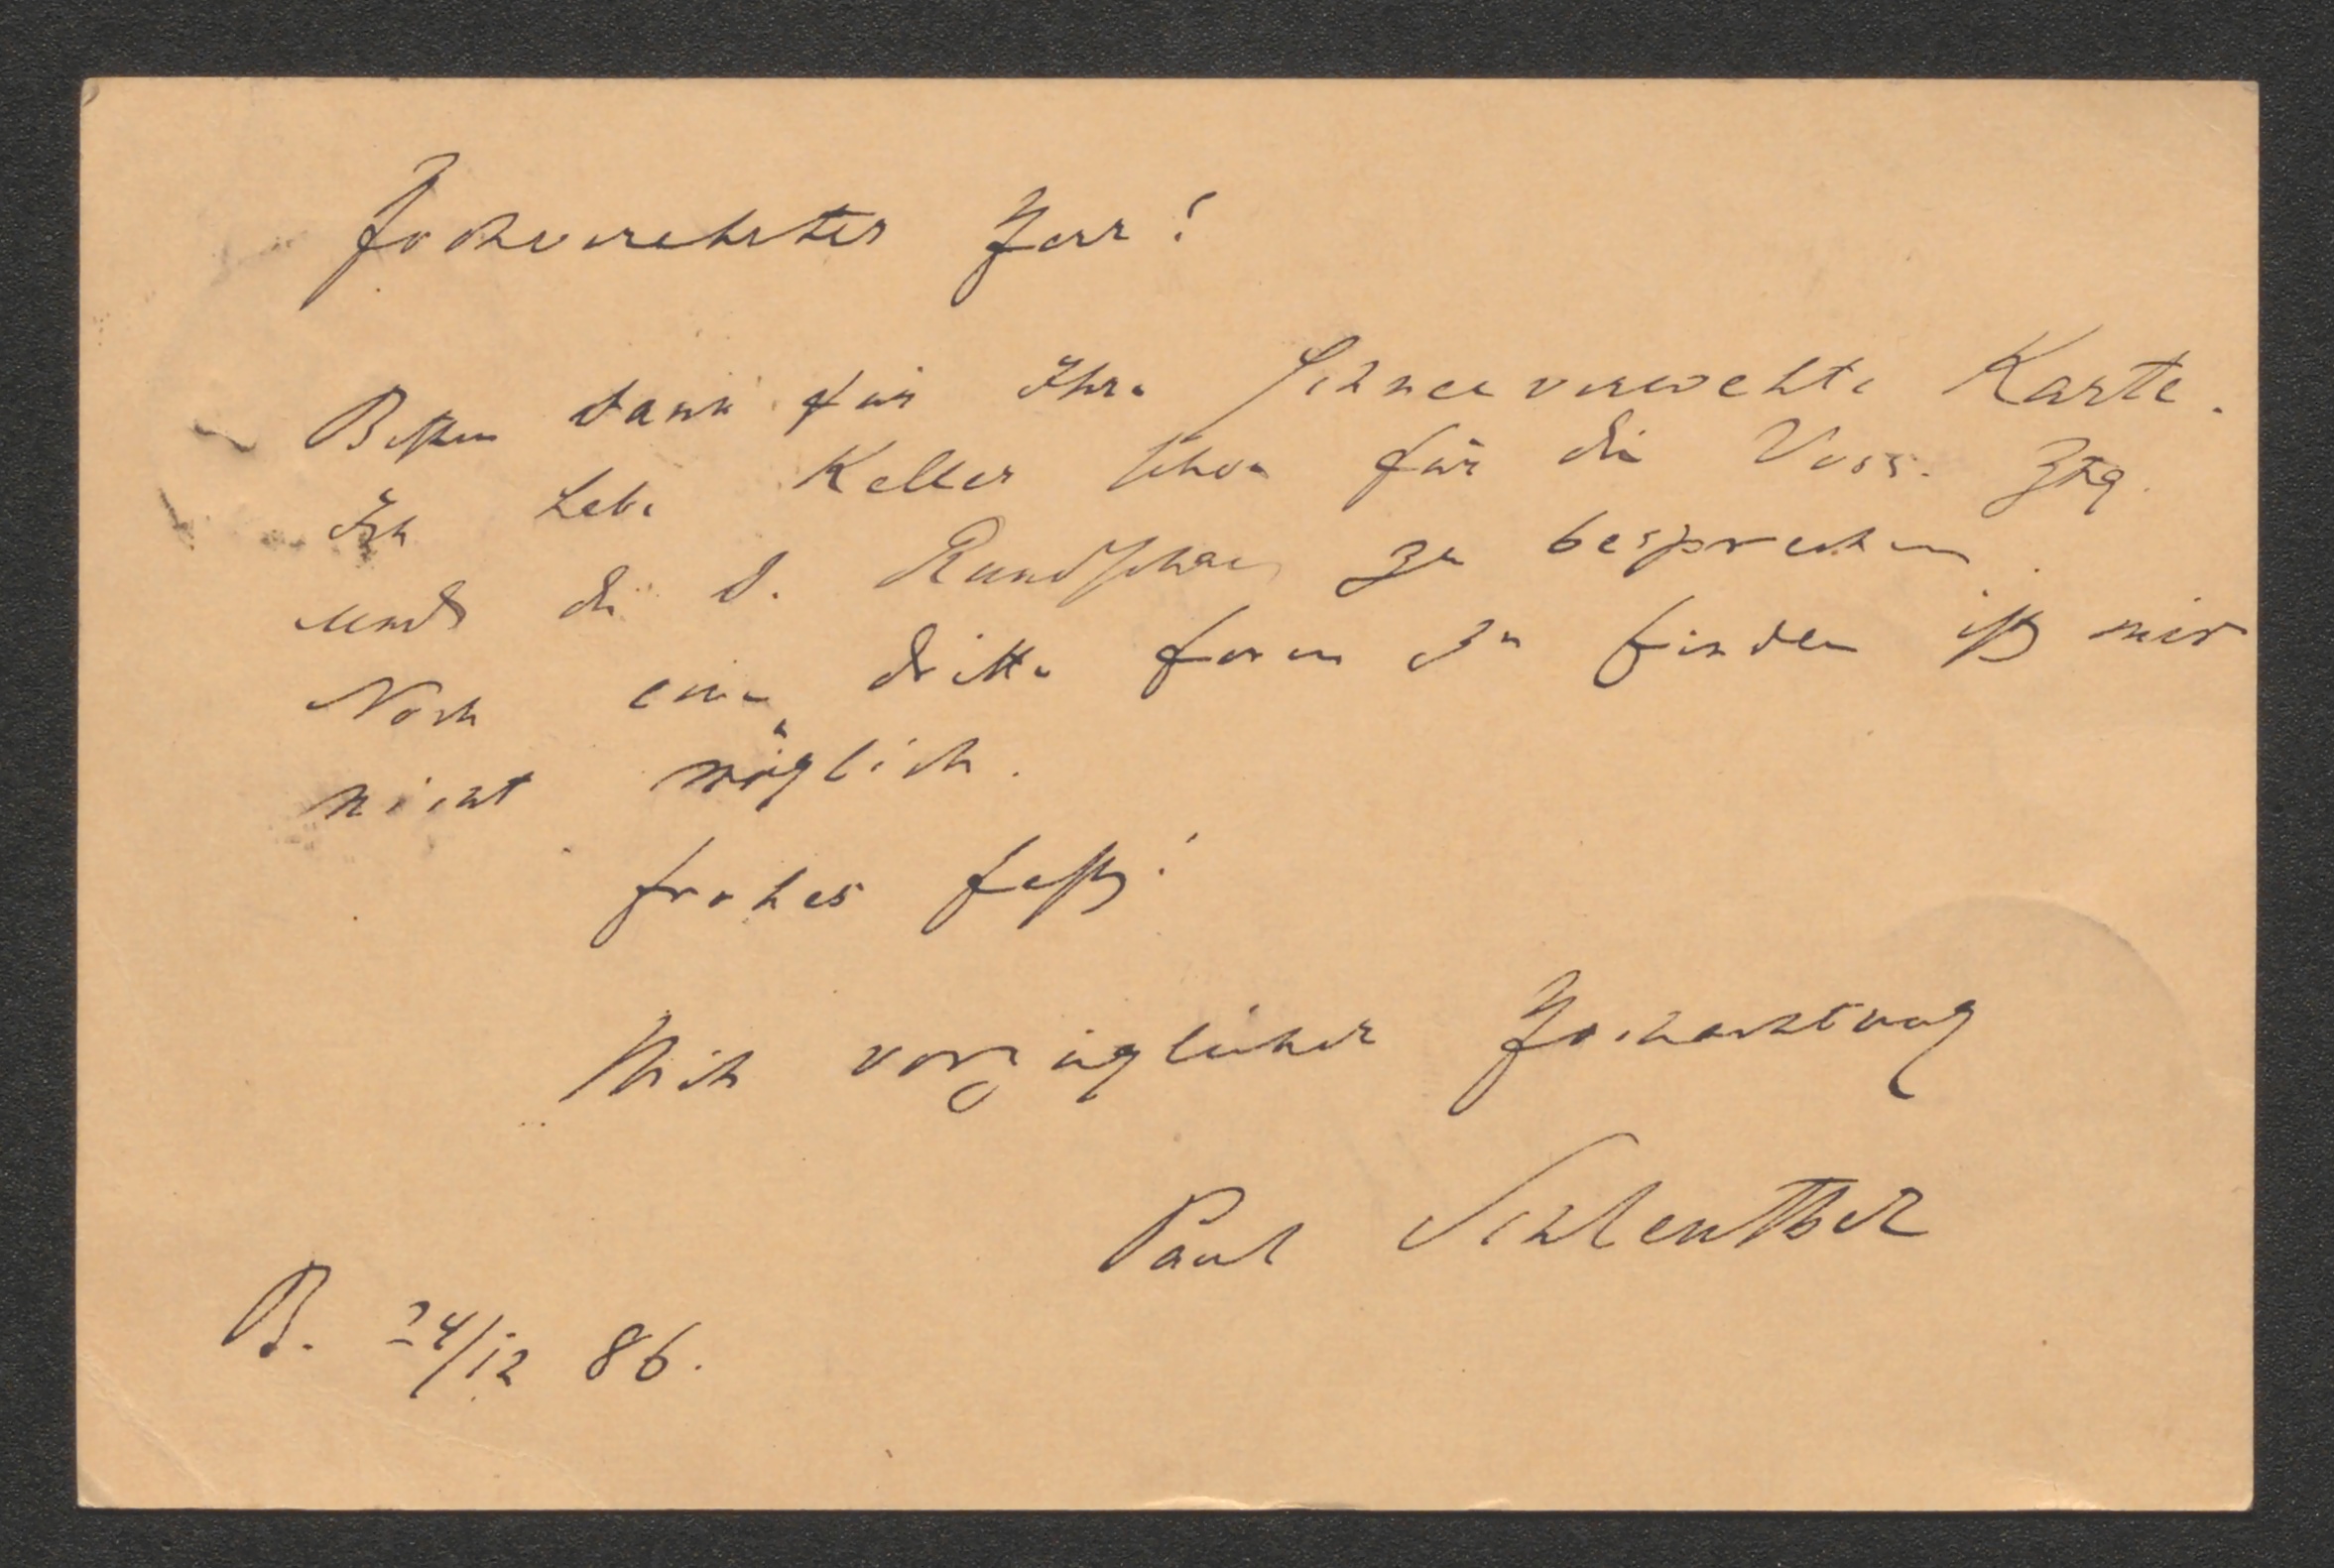 Hochverehrter Herr!
Besten Dank für Ihre Schneeverwehte Karte.
Ich habe Keller schon für die Voss. Ztg.
und die D. Rundschau zu besprechen.
Noch eine dritte Form zu finden ist mir
nicht möglich.
Frohes Fest!
Mit vorzüglicher Hochachtung
Paul Schlenther
B. 24/12 86.